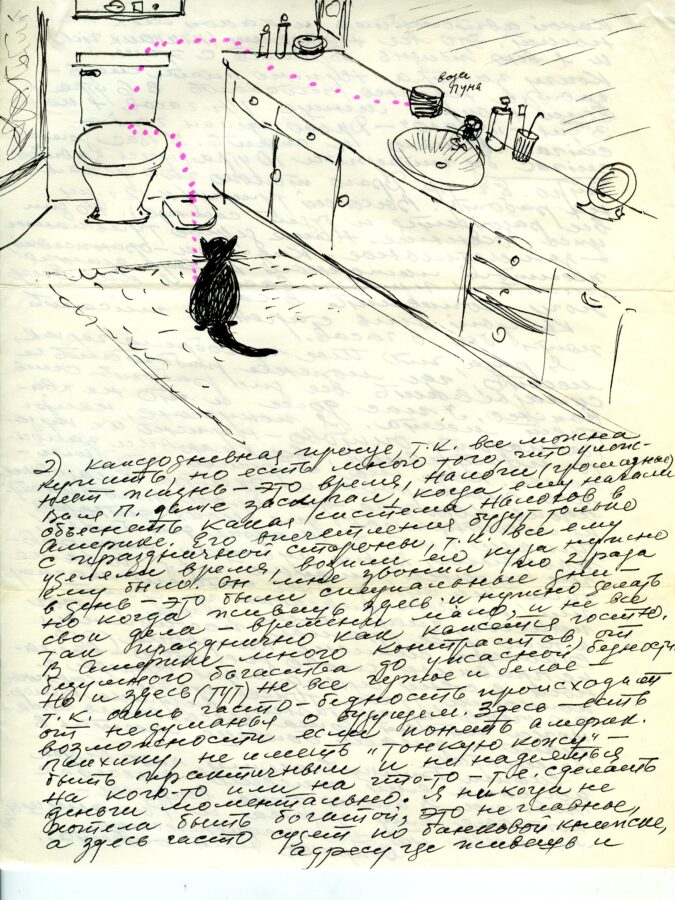 вода
Пуна
2). каждодневная проще, т.к. все можна
купить, но есть много того, что унож-
нает жизнь – это время, налоги (громадные)
Валя П. даже заскучал, когда ему начали
объяснять какая система налогов в
Америке. Его впечатления будут только
с праздничной стороны, т.к. все ему
уделяли время, возили его куда нужно
ему было, он мне звонил по 2 раза
в день – это были специальные дни –
но когда живешь здесь и нужно делать
свои дела – времени мало, и не все
так празднично как кажется гостю.
В Америке много контрастов, от
безумного богатства до ужасной бедности.
Но и здесь (тут) не все черное и белое –
т.к. очень часто – бедность происходит
от не думанья о будущем. Здесь – есть
возможности если понять америк.
психику, не иметь "тонкую кожу" –
быть практичным и не надеяться
на кого-то или на что-то – т.е. сделать
деньги моментально. Я никогда не
хотела быть богатой, это не главное,
а здесь часто судят по банковой книжке,
адресу где живешь и